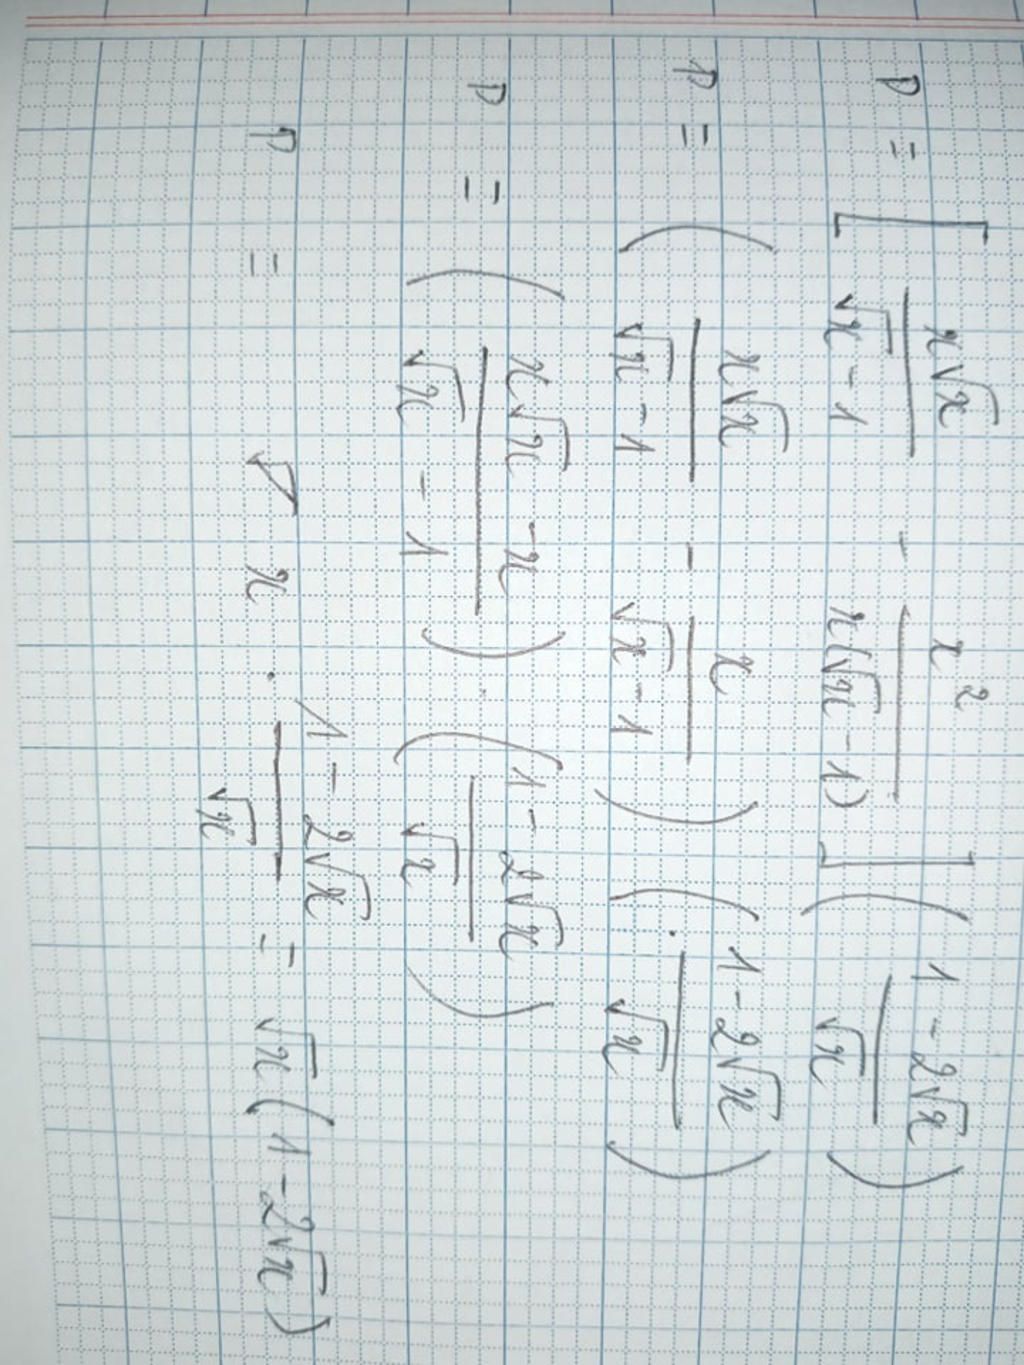 P = [ x√x / (√x - 1) - x² / (x(√x - 1)) ] ( (1 - 2√x) / √x )
P = ( x√x / (√x - 1) - x / (√x - 1) ) · ( (1 - 2√x) / √x )
P = ( (x√x - x) / (√x - 1) ) · ( (1 - 2√x) / √x )
P = x · (1 - 2√x) / √x = √x (1 - 2√x)